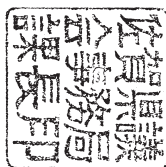 佐賀県議
会事務局
課長印